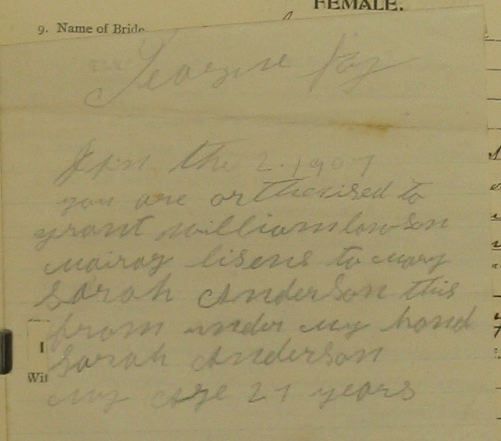 FEMALE.
9. Name of Bride
the 2. 1907
you are ortherised to
grant william lowson
mairag lisens to mary
Sarah Anderson this
from under my hand
Sarah Anderson
my age 21 years